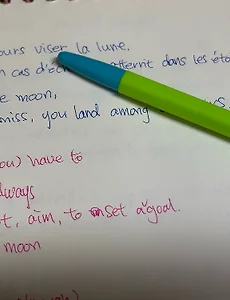 ours viser la lune,
cas d'éc atterrit dans les éto
e moon,
miss, you land among s,
ou) have to
lways
t, aim, to set a goal.
moon